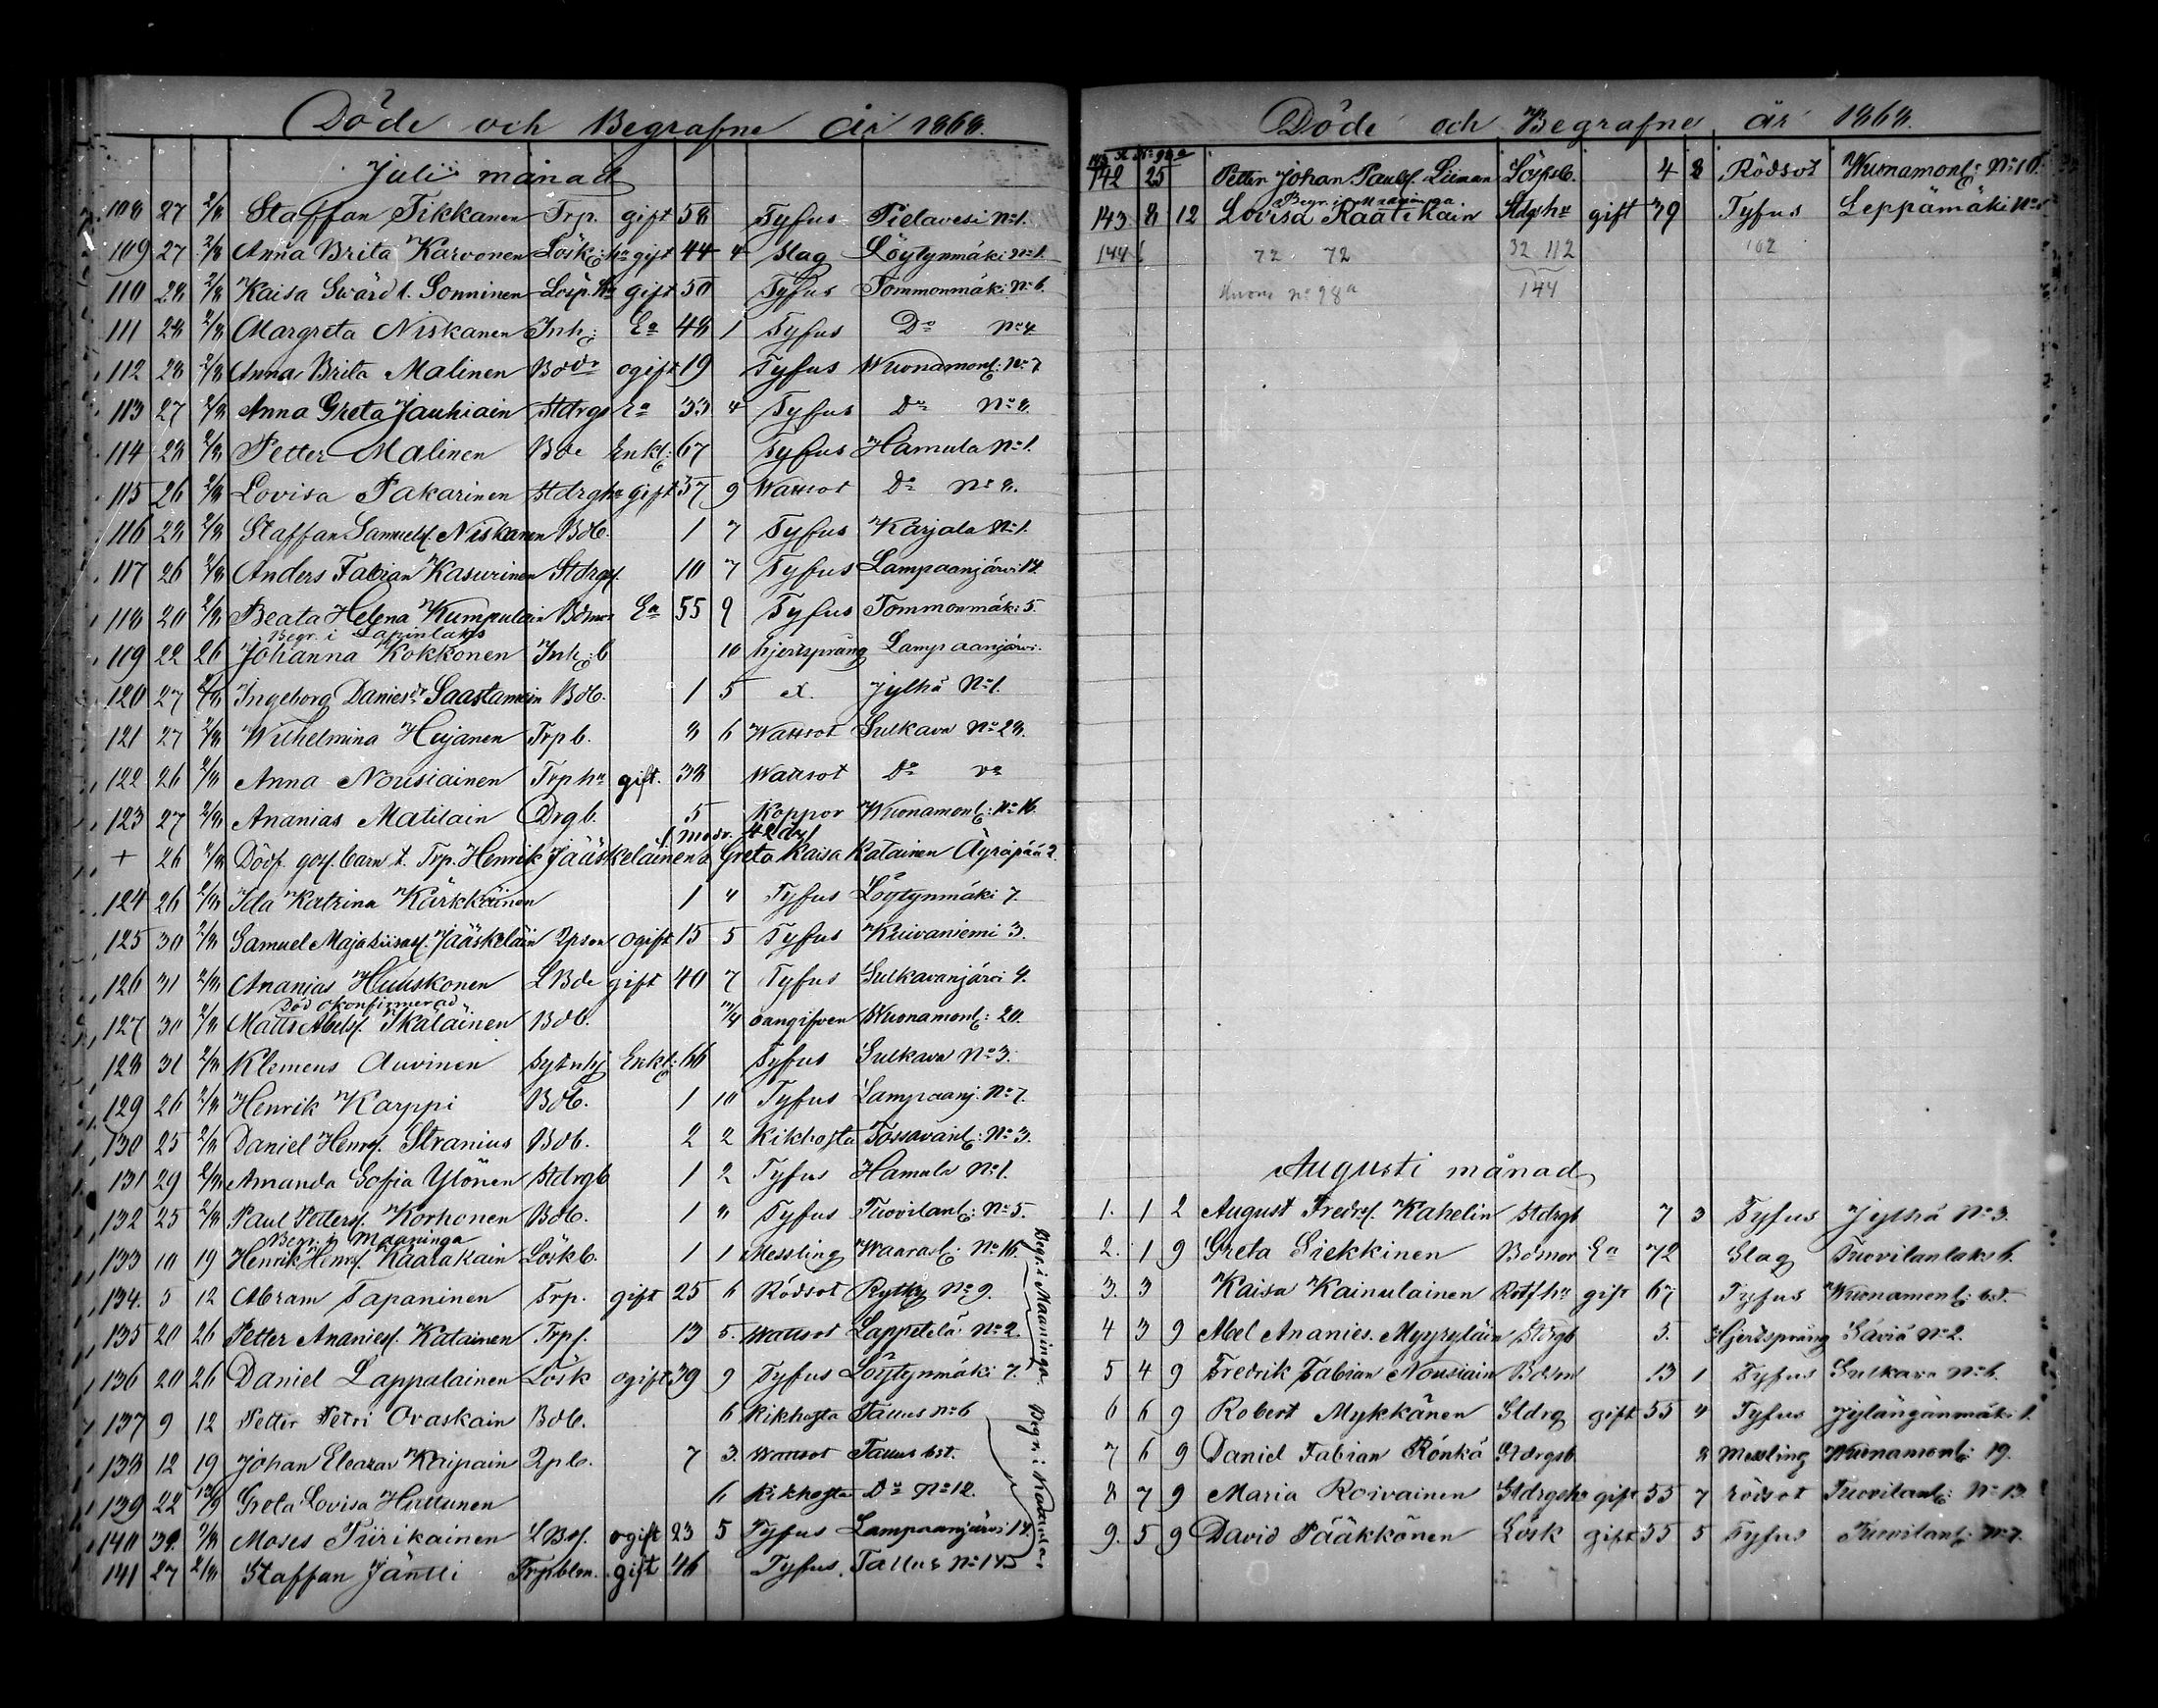 Döde och Begrafne år 1868.
Julii månad
108 27 2/8 Staffan Tikkanen Trp. gift 58 Tyfus Pielavesi No 1.
109 27 2/8 Anna Brita Karvonen Lösk: ha gift 44 4 Slag Löytynmäki No 1.
110 28 2/8 Kaisa Swärd l. Sonninen Lösp. ha gift 50 Tyfus Tommonmäki No 6.
111 28 2/8 Margreta Niskanen Inh: Ea 48 1 Tyfus Do No 4
112 28 2/8 Anna Brita Malinen Bodr ogift 19 Tyfus Wuonamonl: No 7
113 27 2/8 Anna Greta Jauhiain Stdrgs Ea 33 4 Tyfus Do No 8.
114 28 2/8 Petter Malinen Bde Enkl: 67 Tyfus Hamula No 1.
115 26 2/8 Lovisa Pakarinen Stdrgha gift 37 9 Wattsot Do No 8.
116 28 2/8 Staffan Samuels. Niskanen Bdb. 1 7 Tyfus Karjala No 1.
117 26 2/8 Anders Fabian Kasurinen Stdrgs. 10 7 Tyfus Lampaanjärvi 14.
118 20 2/8 Beata Helena Kumpulain Bdmor Ea 55 9 Tyfus Tommonmäki 5.
Begr. i Lapinlaks
119 22 26 Johanna Kokkonen Inh: b 10 Hjertspräng Lampaanjärvi.
120 27 2/8 Ingeborg Daniesdr Saastamoin Bdb. 1 5 d. Jylhä No 1.
121 27 2/8 Wilhelmina Hujanen Trp b. 8 6 Wattsot Sulkava No 28.
122 26 2/8 Anna Nousiainen Trp ha gift. 38 Wattsot Do Do
123 27 2/8 Ananias Matilain Drgb. 5 Koppor Wuonamonl: No 16.
modr. 42 år
+ 26 2/8 Dödf. gos. barn t. Trp. Henrik Jääskeläinen o. Greta Kaisa Katainen Äyräpää 2.
124 26 2/8 Ida Katrina Kärkkäinen 1 4 Tyfus Löytynmäki 7.
125 30 2/8 Samuel Maja Liisas. Jääskeläin Ipson ogift 15 5 Tyfus Kuivaniemi 3.
126 31 2/8 Ananias Huuskonen L Bde gift 40 7 Tyfus Sulkavanjärvi 4.
Död okonfirmerad
127 30 2/8 Matts Abels. Ikäläinen Bdb. oangifven Wuonamonl: 20.
128 31 2/8 Klemens Auvinen Sytnhj Enkl: 66 Tyfus Sulkava No 3.
129 26 2/8 Henrik Karppi Bdb. 1 10 Tyfus Lampaanj. No 7.
130 25 2/8 Daniel Henrs. Stranius Bdb. 2 2 Kikhosta Tossavanl: No 3.
131 29 2/8 Amanda Sofia Ylönen Stdrgb 1 2 Tyfus Hamula No 1.
132 25 2/8 Paul Petters. Korhonen Bdb. 1 8 Tyfus Tuovilanl: No 5.
Begr. i Maaninga
133 10 19 Henrik Henrs. Kaarakain Löskb. 1 1 Messling Waarasl: No 16.
134. 5 12 Abram Tapaninen Trp. gift 25 6 Rödsot Rytky No 9.
135 20 26 Petter Ananies. Katainen Trp s. 13 5. Wattsot Lappetelä No 2.
136 20 26 Daniel Lappalainen Lösk ogift 39 9 Tyfus Löytynmäki 7.
Begr. i Maaninga.
137 9 12 Petter Petri Ovaskain Bdb. 6 Kikhosta Tallus No 6
138 12 19 Johan Eleazar Kaipain Ipb. 7 3. Wattsot Tallus bst.
139 22 Greta Lovisa Huttunen 6 Kikhosta Do No 12.
140 30. 2/8 Moses Piirikainen L Bds. ogift 23 5 Tyfus Lampaanjärvi 14.
141 27 2/8 Staffan Jäntti Trpblm. gift 46 Tyfus. Tallus No 14
Begr. i
Döde och Begrafne år 1868.
142 25 Petter Johan Pauls. Liiman Löspb. 4 8 Rödsot Wuonamonl: No 10.
Begr. i Maaninga.
143. 8 12 Lovisa Raatikain Stdgsha gift 39 Tyfus Leppämäki No
144 72 72 32 112 102
No 98a 144
Augusti månad
1. 1 2 August Fredrs. Kahelin Stdrgb 7 3 Tyfus Jylhä No 3.
2. 1 9 Greta Siekkinen Bdmor Ea 72 Slag Tuovilanlaks 6.
3. 3 Kaisa Kainulainen Rotfha gift 67 Tyfus Wuonamonl: bst.
4 3 9 Abel Ananies. Myyryläin Stdrgb 5. Hjertspräng Säviä No 2.
5 4 9 Fredrik Fabian Nousiain Bdsn 13 1 Tyfus Sulkava No 6.
6 6 9 Robert Mykkänen Stdrg gift 55 4 Tyfus Jylängänmäki 1.
7 6 9 Daniel Fabian Rönkä Stdrgsb 8 Messling Wuonamonl: 19.
8 7 9 Maria Roivainen Stdrgsha gift 55 7 rödsot Tuovilanl: No 13.
9. 5 9 David Pääkkönen Lösk gift 55 5 Tyfus Tuovilanl: No 7.